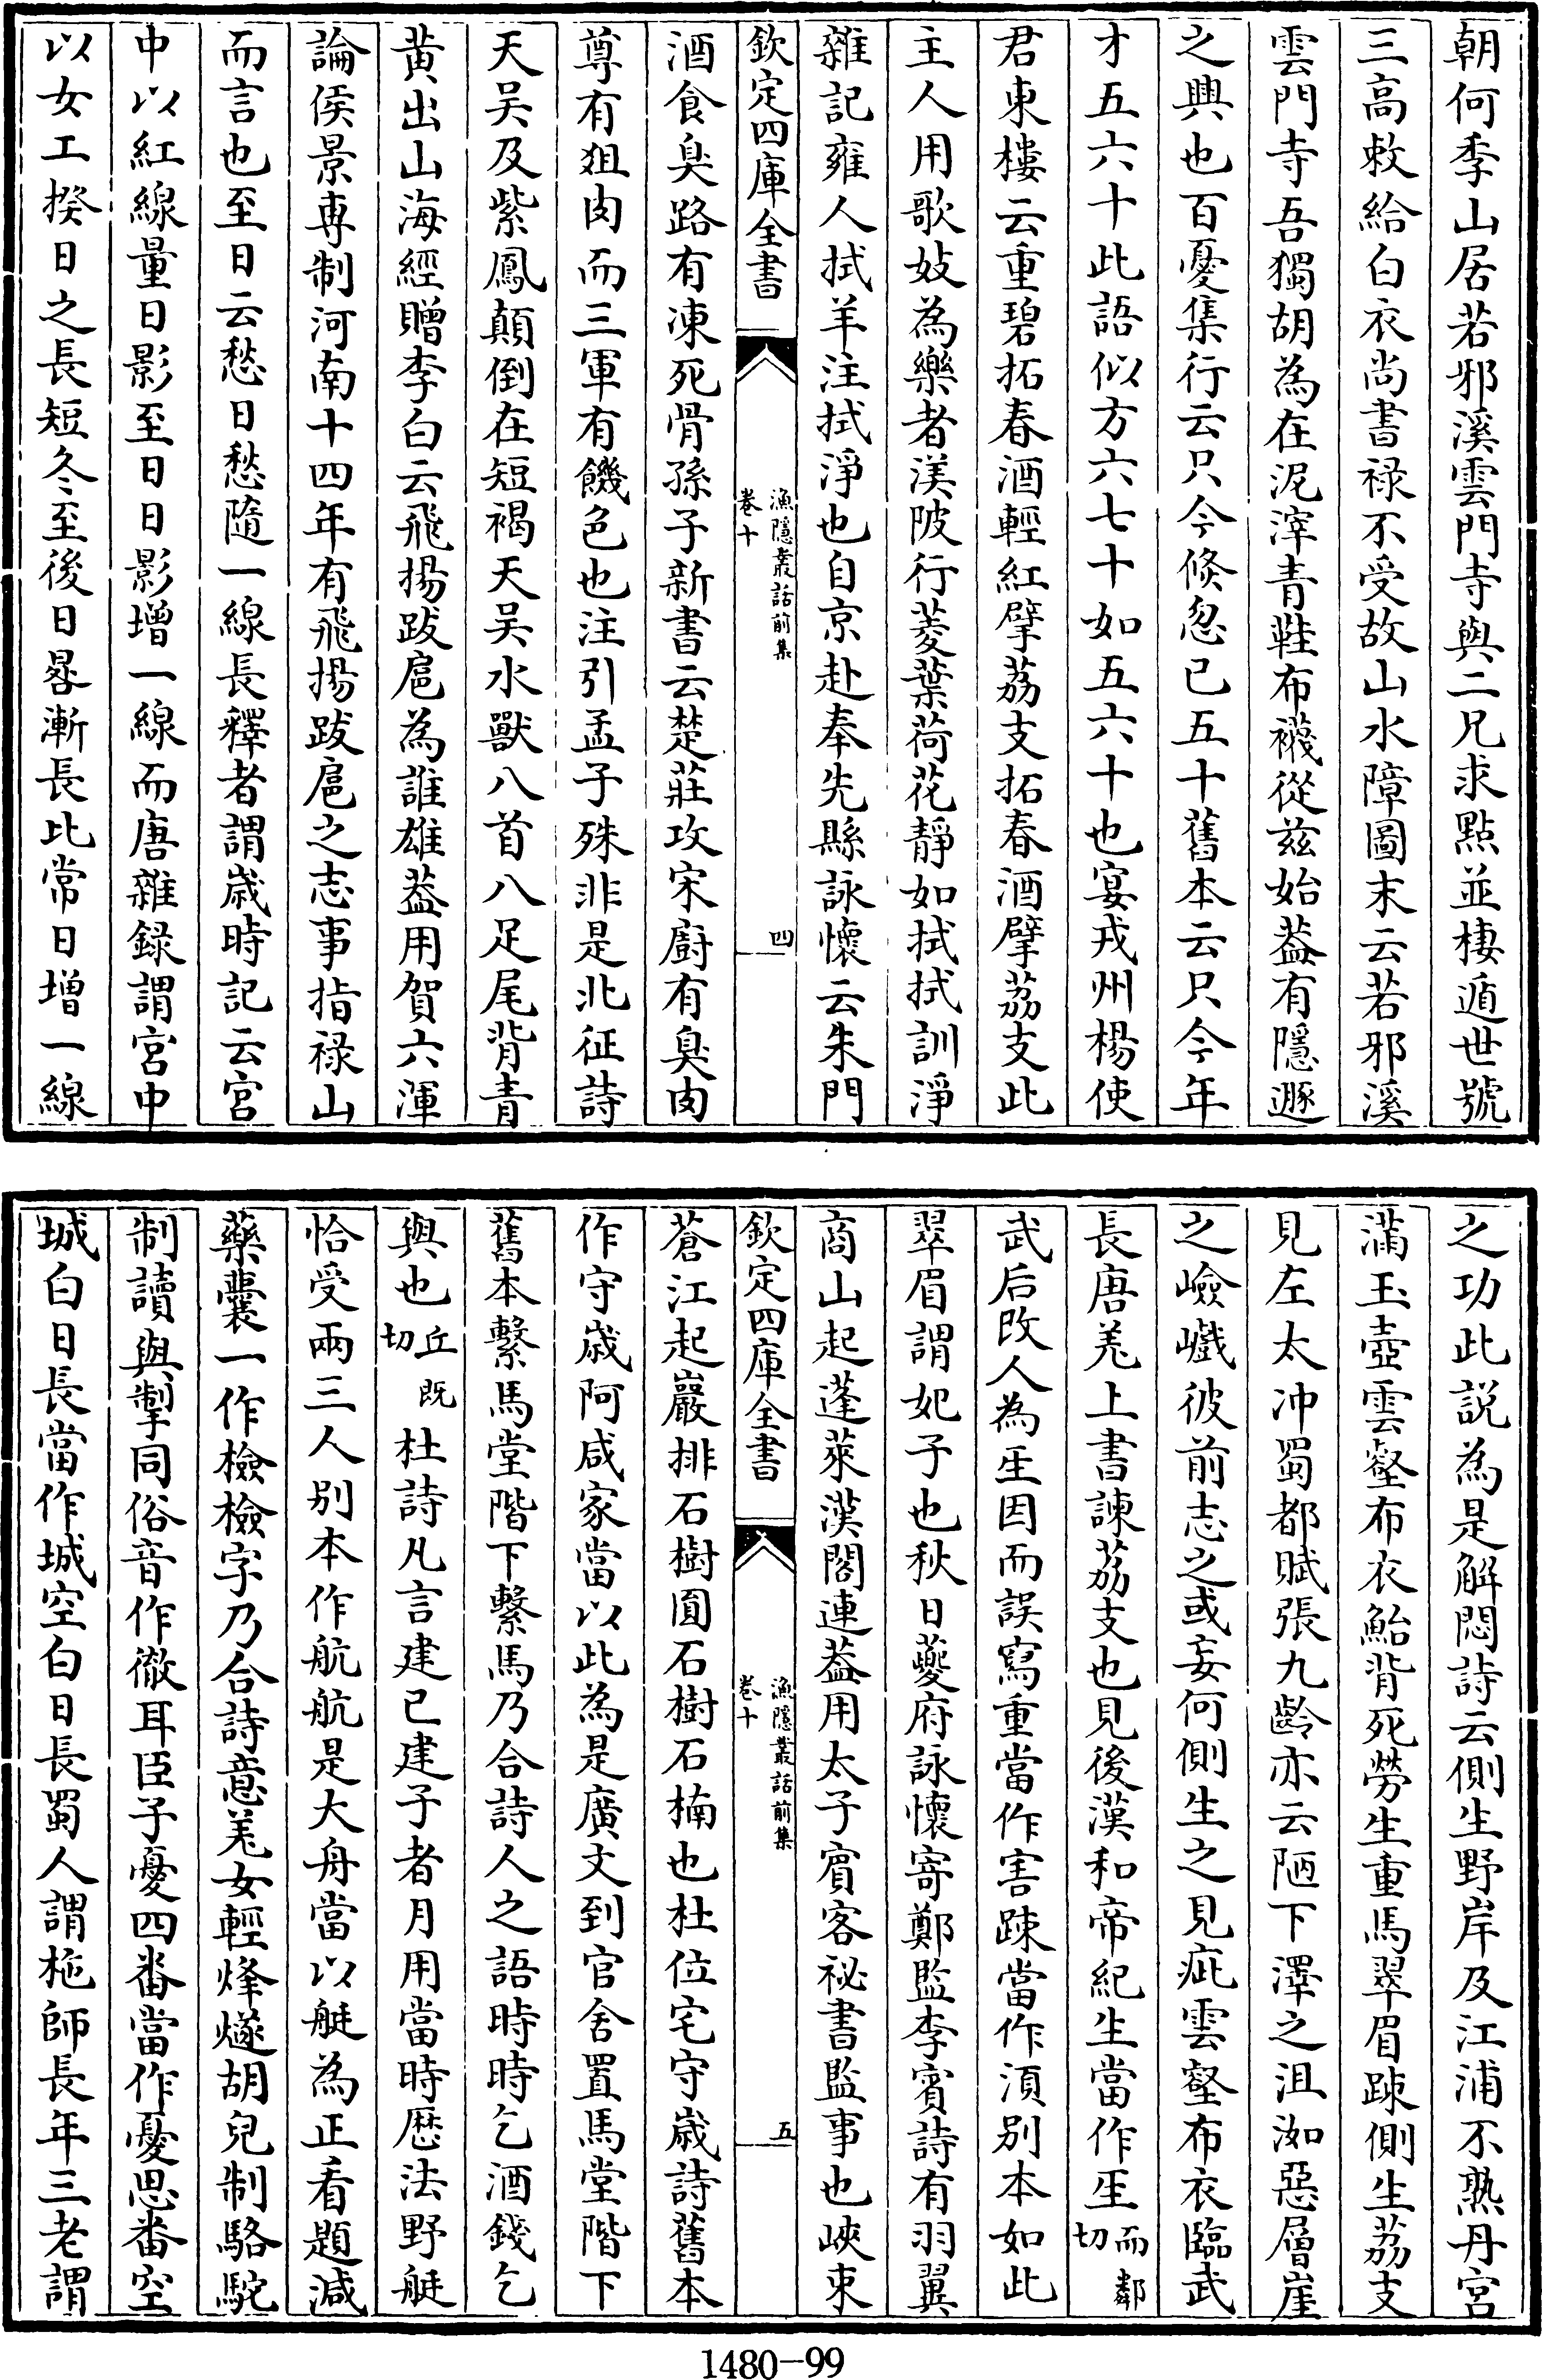 朝何季山居若邪溪雲門寺與二兄求點並棲遁世號
三高敕給白衣尚書禄不受故山水障圖末云若邪溪
雲門寺吾獨胡為在泥滓青鞋布襪從兹始葢有隱遯
之興也百憂集行云只今倐忽已五十舊本云只今年
才五六十此語似方六七十如五六十也宴戎州楊使
君東樓云重碧拓春酒輕紅擘荔支拓春酒擘荔支此
主人用歌妓為樂者渼陂行菱葉荷花靜如拭拭訓淨
雜記雍人拭羊注拭淨也自京赴奉先縣詠懷云朱門
欽定四庫全書
漁隱叢話前集
卷十
四
酒食臭路有凍死骨孫子新書云楚莊攻宋廚有臭肉
尊有狙肉而三軍有饑色也注引孟子殊非是北征詩
天吳及紫鳳顛倒在短褐天吳水獸八首八足尾背青
黄出山海經贈李白云飛揚跋扈為誰雄葢用賀六渾
論侯景専制河南十四年有飛揚跋扈之志事指禄山
而言也至日云愁日愁隨一線長釋者謂歳時記云宮
中以紅線量日影至日日影增一線而唐雜録謂宮中
以女工揆日之長短冬至後日晷漸長比常日增一線
之功此説為是解悶詩云側生野岸及江浦不熟丹宮
滿玉壺雲壑布衣鮐背死勞生重馬翠眉踈側生荔支
見左太冲蜀都賦張九齡亦云陋下澤之沮洳惡層崖
之嶮巇彼前志之或妄何側生之見疵雲壑布衣臨武
長唐羌上書諫荔支也見後漢和帝紀生當作𤯔而鄰切
武后改人為𤯔因而誤寫重當作害踈當作湏别本如此
翠眉謂妃子也秋日夔府詠懷寄鄭監李賓詩有羽翼
商山起蓬萊漢閣連葢用太子賓客祕書監事也峽束
欽定四庫全書
漁隱叢話前集
卷十
五
蒼江起巖排石樹圎石樹石楠也杜位宅守歳詩舊本
作守歳阿咸家當以此為是廣文到官舍置馬堂階下
舊本繫馬堂階下繫馬乃合詩人之語時時乞酒錢乞
與也丘既切杜詩凡言建已建子者月用當時厯法野艇
恰受兩三人别本作航航是大舟當以艇為正看題減
藥囊一作檢檢字乃合詩意羌女輕烽燧胡兒制駱駝
制讀與掣同俗音作徹耳臣子憂四番當作憂思番空
城白日長當作城空白日長蜀人謂柂師長年三老謂
1480-99